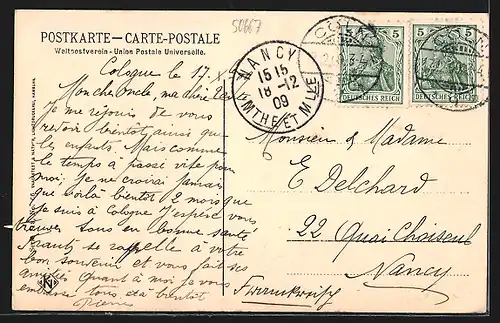 POSTKARTE — CARTE-POSTALE
Weltpostverein - Union Postale Universelle.
50667
Cologne le 17.X
Mon cher Oncle, ma chère Tante
Je me réjouis de vous
revoir bientôt ainsi que les
enfants. Mais comme
le temps a passé vite pour
moi. Je ne croirai jamais
que voilà bientôt 2 mois que
je suis à Cologne J'espère vous
trouver tous en bonne santé
se rappelle à votre
bon souvenir et vous fait ses
amitiés Quant à moi je vous
embrasse tous et à bientôt
Pierre
NANCY
15 15
18 -12
09
MTHE ET MLLE
CÖLN
5 5
DEUTSCHES REICH
Monsieur & Madame
E Delchard
22 Quai Choiseul
Nancy
Frankreich